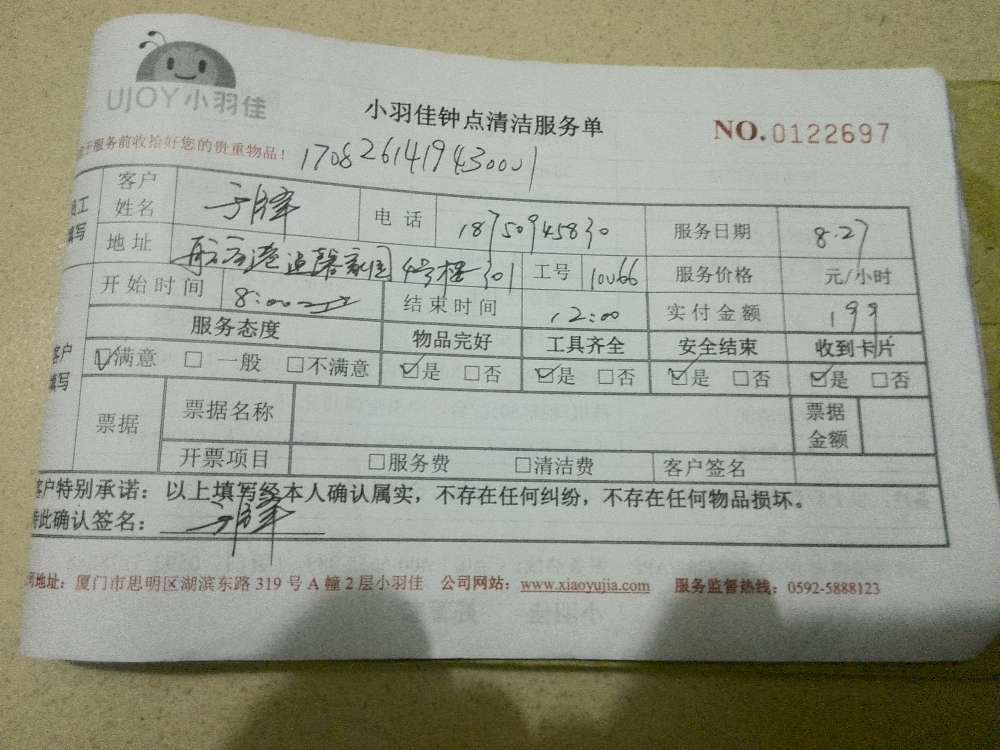 UJOY小羽佳
小羽佳钟点清洁服务单
NO.0122697
于服务前收拾好您的贵重物品！
1708261419430001
员工填写
客户姓名 电话 18750945830 服务日期 8.27
地址 4号楼301 工号 10066 服务价格 元/小时
开始时间 8:00 结束时间 12:00 实付金额 199
客户填写
服务态度 物品完好 工具齐全 安全结束 收到卡片
☑满意 □一般 □不满意 ☑是 □否 ☑是 □否 ☑是 □否 ☑是 □否
票据 票据名称 票据金额
开票项目 □服务费 □清洁费 客户签名
客户特别承诺：以上填写经本人确认属实，不存在任何纠纷，不存在任何物品损坏。
特此确认签名：
司地址：厦门市思明区湖滨东路319号A幢2层小羽佳 公司网站：www.xiaoyujia.com 服务监督热线：0592-5888123